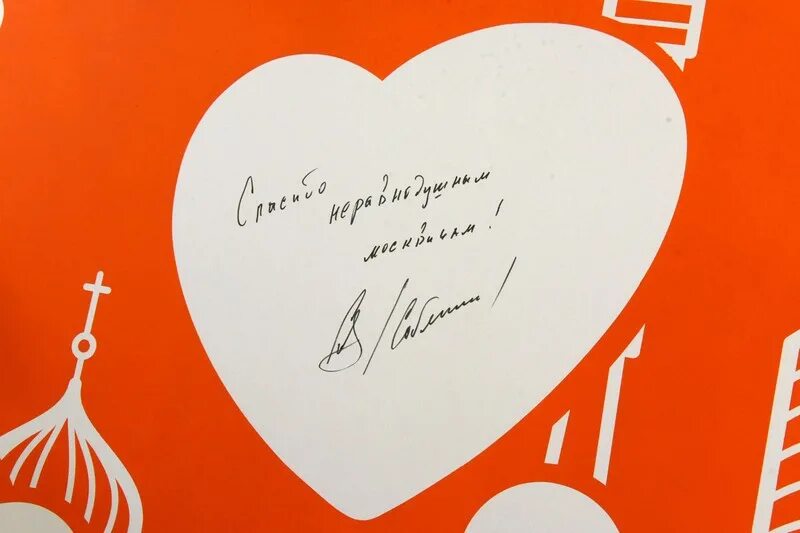 Спасибо неравнодушным
москвичам!
/Саблин/